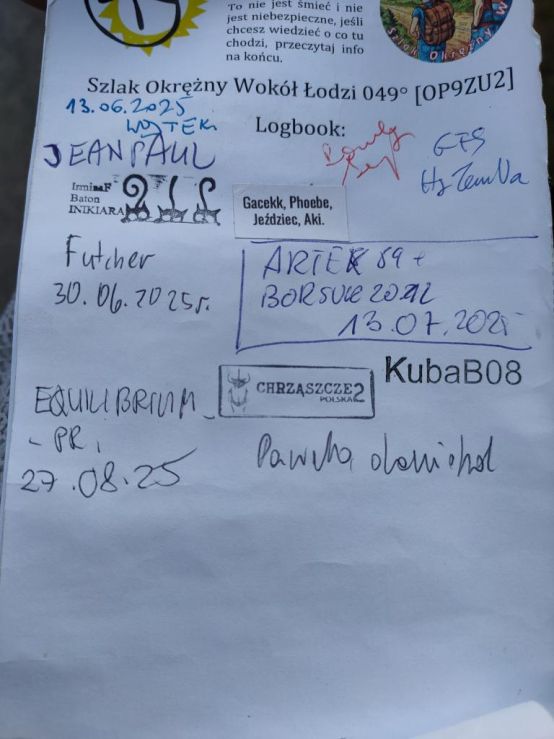 To nie jest śmieć i nie
jest niebezpieczne, jeśli
chcesz wiedzieć o co tu
chodzi, przeczytaj info
na końcu.
Szlak Okrężny W
Szlak Okrężny Wokół Łodzi 049° [OP9ZU2]
Logbook:
13.06.2025
WOJTEK
JEANPAUL
GFS
IrminaF
Baton
INIKIARA
Gacekk, Phoebe,
Jeździec, Aki.
Futcher
30.06.2025r.
ARTEK 89 +
BORSUK 2012
13.07.2025
KubaB08
CHRZĄSZCZE2
POLSKA
EQUILIBRIUM
- PR,
27.08.25